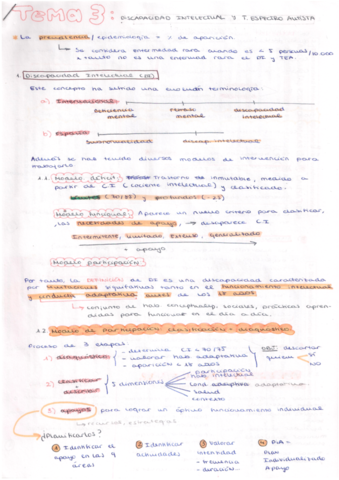 Tema 3: DISCAPACIDAD INTELECTUAL Y T. ESPECTRO AUTISTA
La prevalencia/epidemiología = % de aparición.
Se considera enfermedad rara cuando es < 5 personas/10.000
x tanto no es una enfermedad rara el DI y TEA.
1. Discapacidad Intelectual (DI)
Este concepto ha sufrido una evolución terminología:
a) Internacional
Deficiencia mental
retraso mental
discapacidad intelectual
b) España
Subnormalidad
discap. intelectual
Además se han tenido diversos modelos de intervención para
1.1 Modelo déficit: trastorno inmutable, medido a
partir de CI (cociente intelectual) y clasificado.
y profundos
Modelo Bilingüe: Aparece un nuevo criterio para clasificar,
las necesidades de apoyo, desaparece CI
Intermitente, Limitado, Extenso, generalizado
+ apoyo
Modelo participación
Por tanto la definición de DI es una discapacidad caracterizada
por limitaciones significativas tanto en el funcionamiento intelectual
y conducta adaptativa antes de los 18 años.
conjunto de hab. conceptuales, sociales, prácticas apren-
didas para funcionar en el día a día.
1.2 Modelo de Participación: clasificación - diagnóstico
Proceso de 3 etapas
1) diagnóstico
- determine CI < 70/75
- valorar hab adaptativa
- aparición < 18 años
OBJ descartar
quién
SÍ
NO
2) clasificar
+
describir
5 dimensiones
participación
hab intelectual
cond adaptativa
salud
contexto
3) apoyos para lograr un óptimo funcionamiento individual
¿Planificarlos?
1 Identificar el
apoyo en las 9
áreas
2 Identificar
actividades
3 Valorar
intensidad
- frecuencia
- duración
4 PIA =
Plan
Individualizado
Apoyo